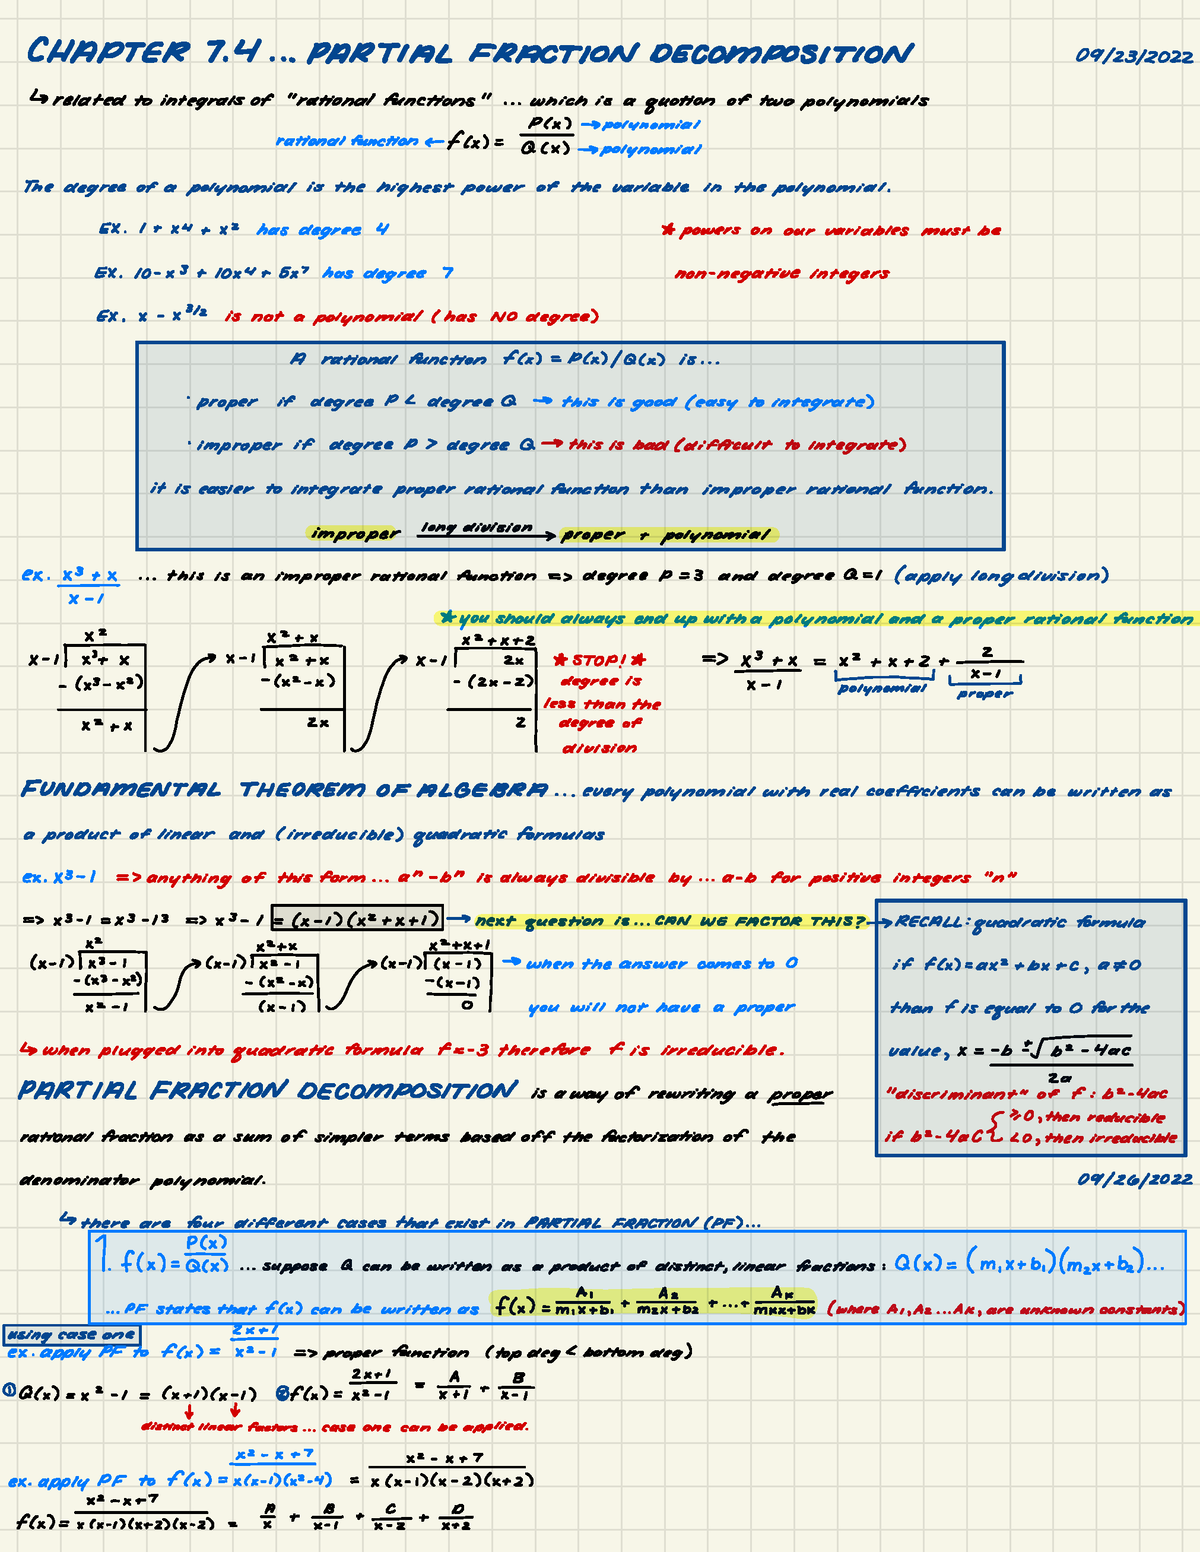 CHAPTER 7.4... PARTIAL FRACTION DECOMPOSITION 09/23/2022
↳ related to integrals of "rational functions" ... which is a quotion of two polynomials
rational function ← f(x) = P(x)/Q(x) → polynomial → polynomial
The degree of a polynomial is the highest power of the variable in the polynomial.
EX. 1 + x⁴ + x² has degree 4 * powers on our variables must be
EX. 10 - x³ + 10x⁴ + 5x⁷ has degree 7 non-negative integers
EX. x - x^3/2 is not a polynomial (has NO degree)
A rational function f(x) = P(x)/Q(x) is...
· proper if degree P < degree Q → this is good (easy to integrate)
· improper if degree P > degree Q → this is bad (difficult to integrate)
it is easier to integrate proper rational function than improper rational function.
improper long division → proper + polynomial
ex. x³ + x / x - 1 ... this is an improper rational function => degree P = 3 and degree Q = 1 (apply long division)
* you should always end up with a polynomial and a proper rational function
x² x² + x x² + x + 2
x - 1 x³ + x x - 1 x² + x x - 1 2x * STOP! * => x³ + x / x - 1 = x² + x + 2 + 2 / x - 1
- (x³ - x²) - (x² - x) - (2x - 2) degree is polynomial proper
less than the
x² + x 2x 2 degree of
division
FUNDAMENTAL THEOREM OF ALGEBRA... every polynomial with real coefficients can be written as
a product of linear and (irreducible) quadratic formulas
ex. x³ - 1 => anything of this form... aⁿ - bⁿ is always divisible by... a - b for positive integers "n"
=> x³ - 1 = x³ - 1³ => x³ - 1 = (x - 1)(x² + x + 1) → next question is... CAN WE FACTOR THIS? → RECALL: quadratic formula
x² x² + x x² + x + 1
(x - 1) x³ - 1 (x - 1) x² - 1 (x - 1) (x - 1) → when the answer comes to 0 if f(x) = ax² + bx + c, a ≠ 0
- (x³ - x²) - (x² - x) - (x - 1)
x² - 1 (x - 1) 0 you will not have a proper than f is equal to 0 for the
↳ when plugged into quadratic formula f = -3 therefore f is irreducible. value, x = -b ± √b² - 4ac / 2a
PARTIAL FRACTION DECOMPOSITION is a way of rewriting a proper "discriminant" of f: b² - 4ac
≥ 0, then reducible
rational fraction as a sum of simpler terms based off the factorization of the if b² - 4ac { < 0, then irreducible
denominator polynomial. 09/26/2022
↳ there are four different cases that exist in PARTIAL FRACTION (PF)...
1. f(x) = P(x)/Q(x) ... suppose Q can be written as a product of distinct, linear fractions: Q(x) = (m₁x + b₁)(m₂x + b₂)...
... PF states that f(x) can be written as f(x) = A₁/m₁x + b₁ + A₂/m₂x + b₂ + ... + Aₖ/mₖx + bₖ (where A₁, A₂ ... Aₖ, are unknown constants)
using case one
ex. apply PF to f(x) = 2x + 1 / x² - 1 => proper function (top deg < bottom deg)
① Q(x) = x² - 1 = (x + 1)(x - 1) ② f(x) = 2x + 1 / x² - 1 = A / x + 1 + B / x - 1
distinct linear factors... case one can be applied.
ex. apply PF to f(x) = x² - x + 7 / x(x - 1)(x² - 4) = x² - x + 7 / x(x - 1)(x - 2)(x + 2)
f(x) = x² - x + 7 / x(x - 1)(x + 2)(x - 2) = A/x + B / x - 1 + C / x - 2 + D / x + 2